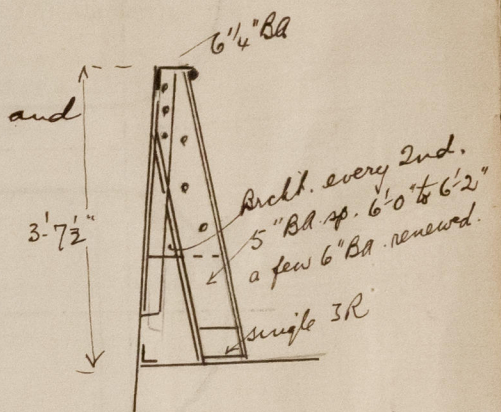 6¼" BA
and
3'-7½"
Brckt. every 2nd.
5" BA. sp. 6'-0" to 6'-2"
a few 6" BA. renewed.
single 3R